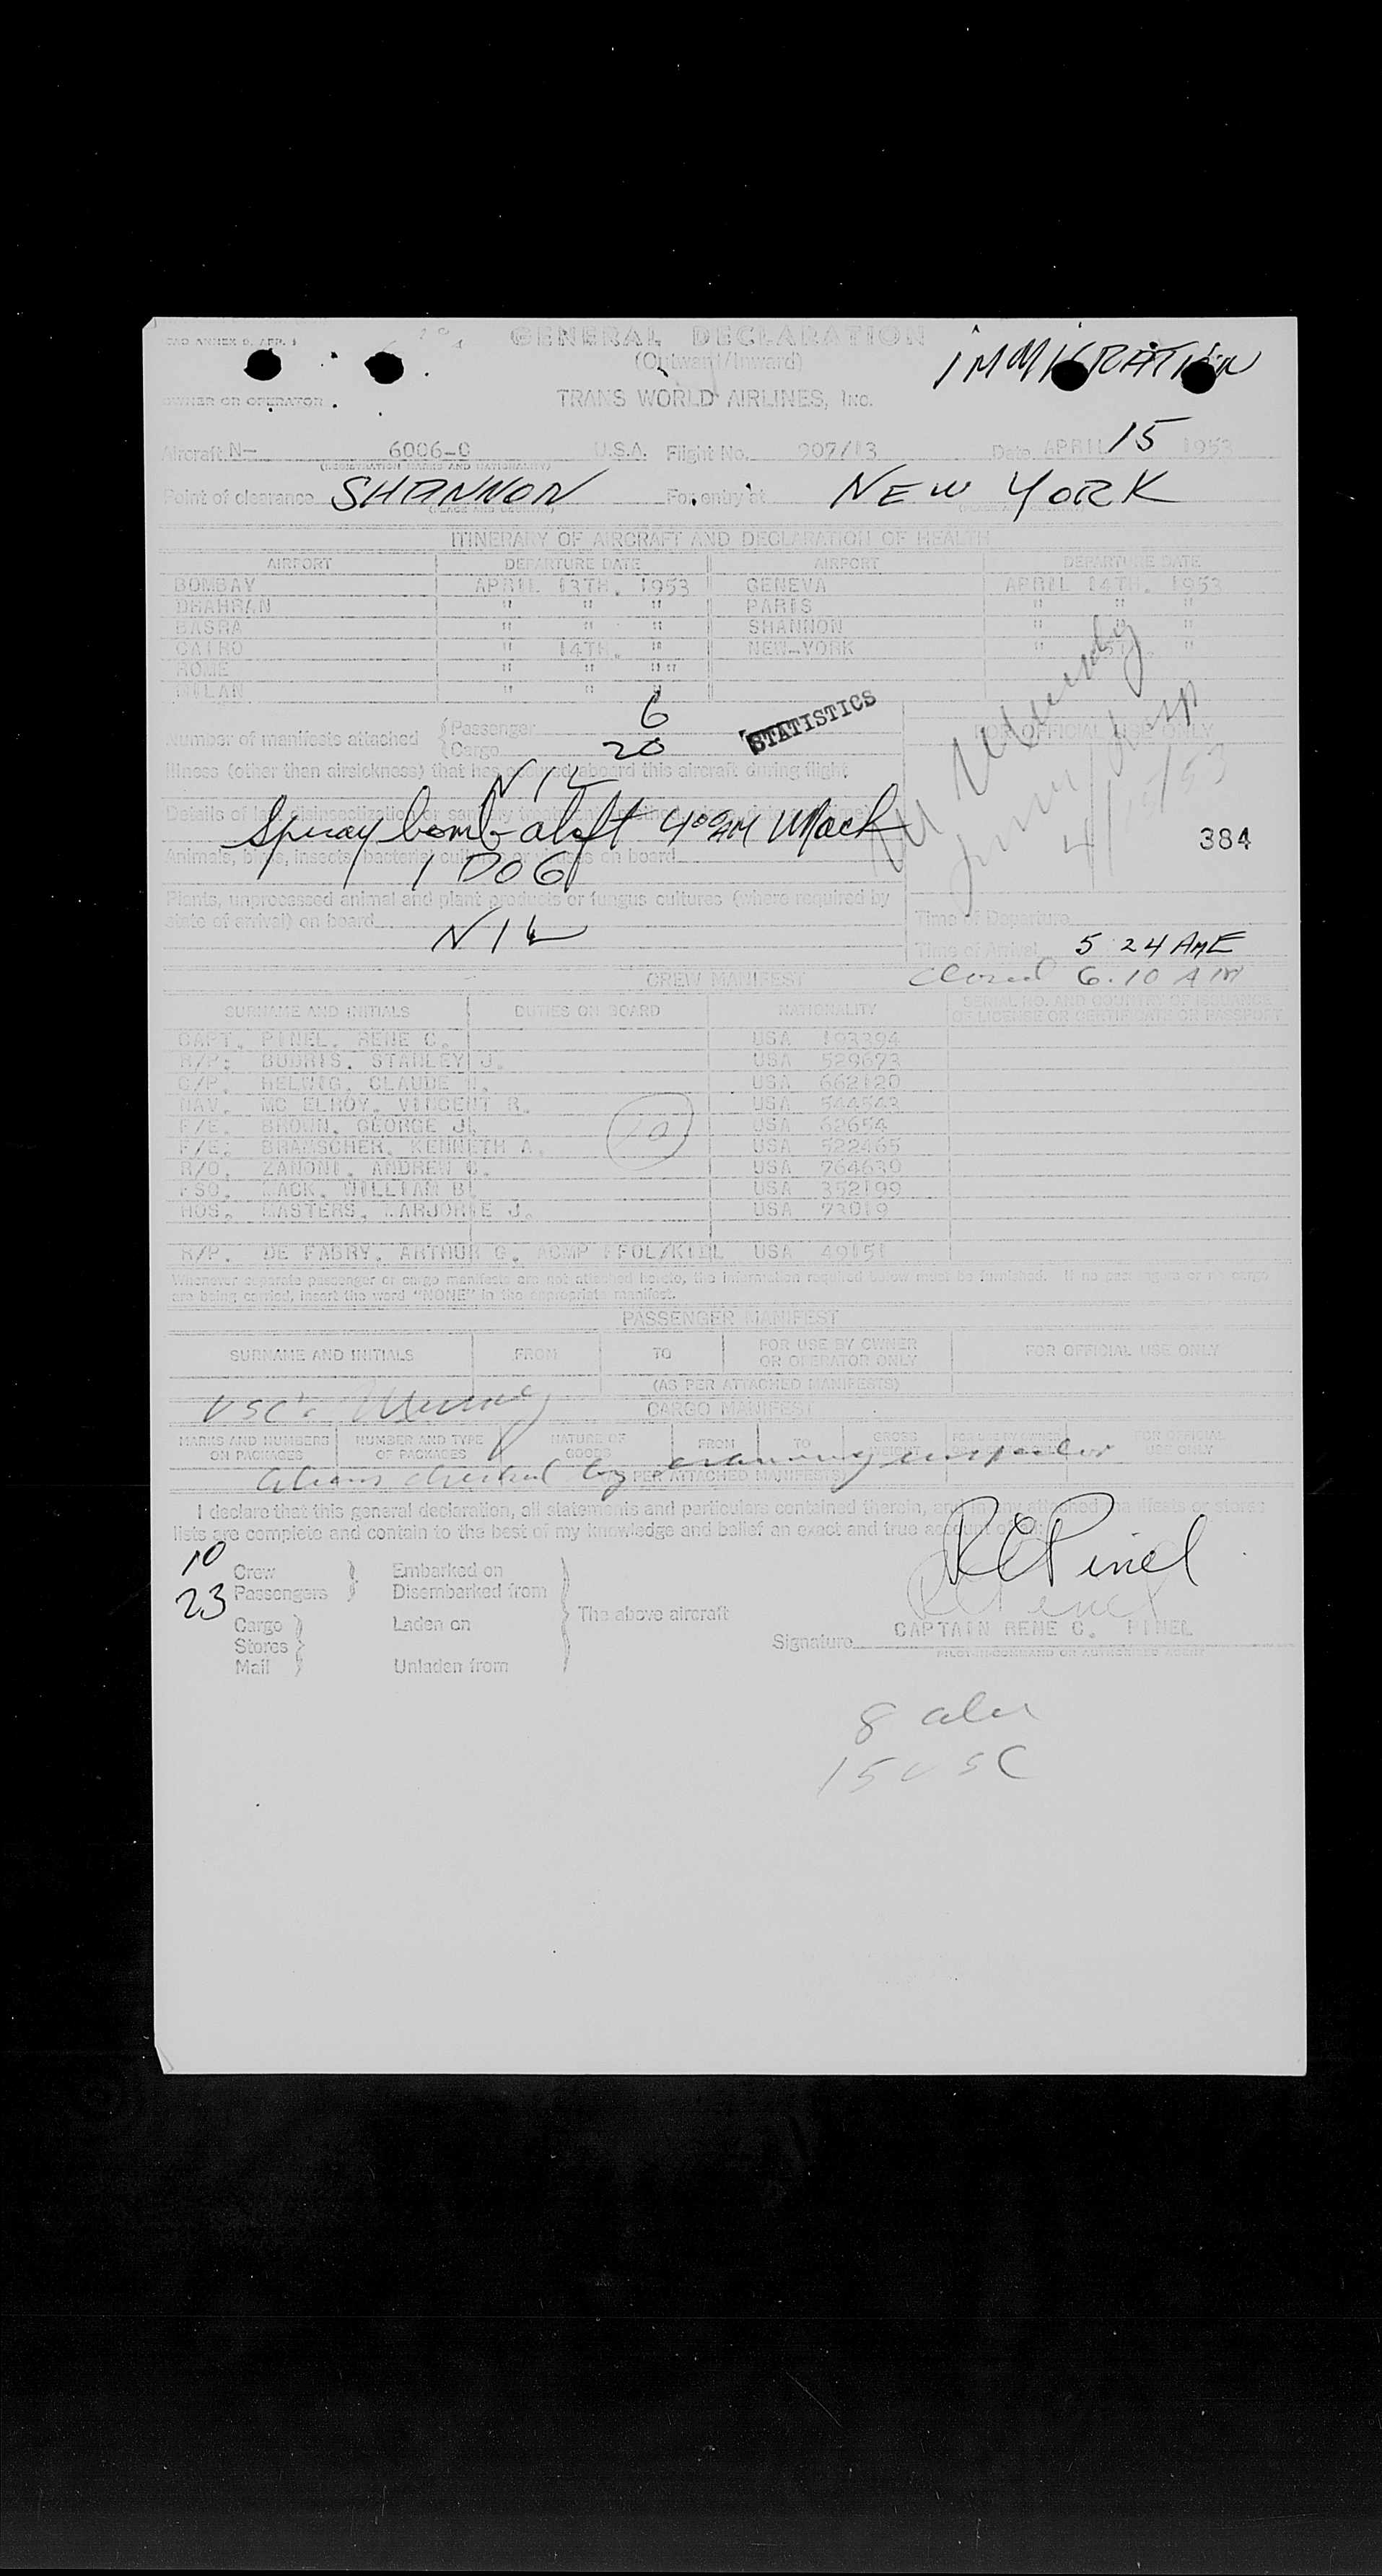 ICAO ANNEX 9, APP. 1
GENERAL DECLARATION
(Outward/Inward)
IMMIGRATION
OWNER OR OPERATOR
TRANS WORLD AIRLINES, Inc.
Aircraft N- 6006-C U.S.A. Flight No. 907/13 Date APRIL 15 1953
(REGISTRATION MARKS AND NATIONALITY)
Point of clearance SHANNON For entry at NEW YORK
(PLACE AND COUNTRY) (PLACE AND COUNTRY)
ITINERARY OF AIRCRAFT AND DECLARATION OF HEALTH
AIRPORT DEPARTURE DATE AIRPORT DEPARTURE DATE
BOMBAY APRIL 13TH. 1953 GENEVA APRIL 14TH. 1953
DHAHRAN " " " PARIS " " "
BASRA " " " SHANNON " " "
CAIRO " 14TH. " NEW-YORK " 15TH. "
ROME " " "
MILAN " " "
Number of manifests attached Passenger 6
Cargo 20
STATISTICS
FOR OFFICIAL USE ONLY
Illness (other than airsickness) that has occurred aboard this aircraft during flight
NIL
Details of last disinsectization or sanitary treatment
Spray bomb aloft 400AM WMack
384
4/15/53
Animals, birds, insects, bacterial cultures or viruses on board
1 DOG
Plants, unprocessed animal and plant products or fungus cultures (where required by
state of arrival) on board
NIL
Time of Departure
Time of Arrival 5 24 AME
Closed 6.10 AM
CREW MANIFEST
SURNAME AND INITIALS DUTIES ON BOARD NATIONALITY SERIAL NO. AND COUNTRY OF ISSUANCE
OF LICENSE OR CERTIFICATE OR PASSPORT
CAPT. PINEL. RENE C. USA 193394
R/P: BUBRIS. STANLEY J. USA 529673
C/P. HELWIG. CLAUDE H. USA 662120
NAV. MC ELROY. VINCENT R. USA 544543
F/E. BROWN. GEORGE J. USA 62654
F/E. BRAMSCHER. KENNETH A. USA 522465
R/O. ZANONI. ANDREW C. USA 764630
FSO. MACK. WILLIAM B. USA 352199
HOS. MASTERS. MARJORIE J. USA 73019
10
R/P. DE FABRY. ARTHUR G. ACMP USA 49151
Whenever separate passenger or cargo manifests are not attached hereto, the information required below must be furnished. If no passengers or no cargo
are being carried, insert the word "NONE" in the appropriate manifest.
PASSENGER MANIFEST
SURNAME AND INITIALS FROM TO FOR USE BY OWNER
OR OPERATOR ONLY FOR OFFICIAL USE ONLY
(AS PER ATTACHED MANIFESTS)
USC's
CARGO MANIFEST
MARKS AND NUMBERS
ON PACKAGES NUMBER AND TYPE
OF PACKAGES NATURE OF
GOODS FROM TO GROSS
WEIGHT FOR USE BY OWNER FOR OFFICIAL
USE ONLY
Aliens checked by examining inspector
PER ATTACHED MANIFESTS)
I declare that this general declaration, all statements and particulars contained therein, and in any attached manifests or stores
lists are complete and contain to the best of my knowledge and belief an exact and true account of all:
10 Crew Embarked on
23 Passengers Disembarked from
Cargo Laden on
The above aircraft
Stores
Mail Unladen from
R C Pinel
CAPTAIN RENE C. PINEL
Signature
PILOT-IN-COMMAND OR AUTHORIZED AGENT
8
15 USC